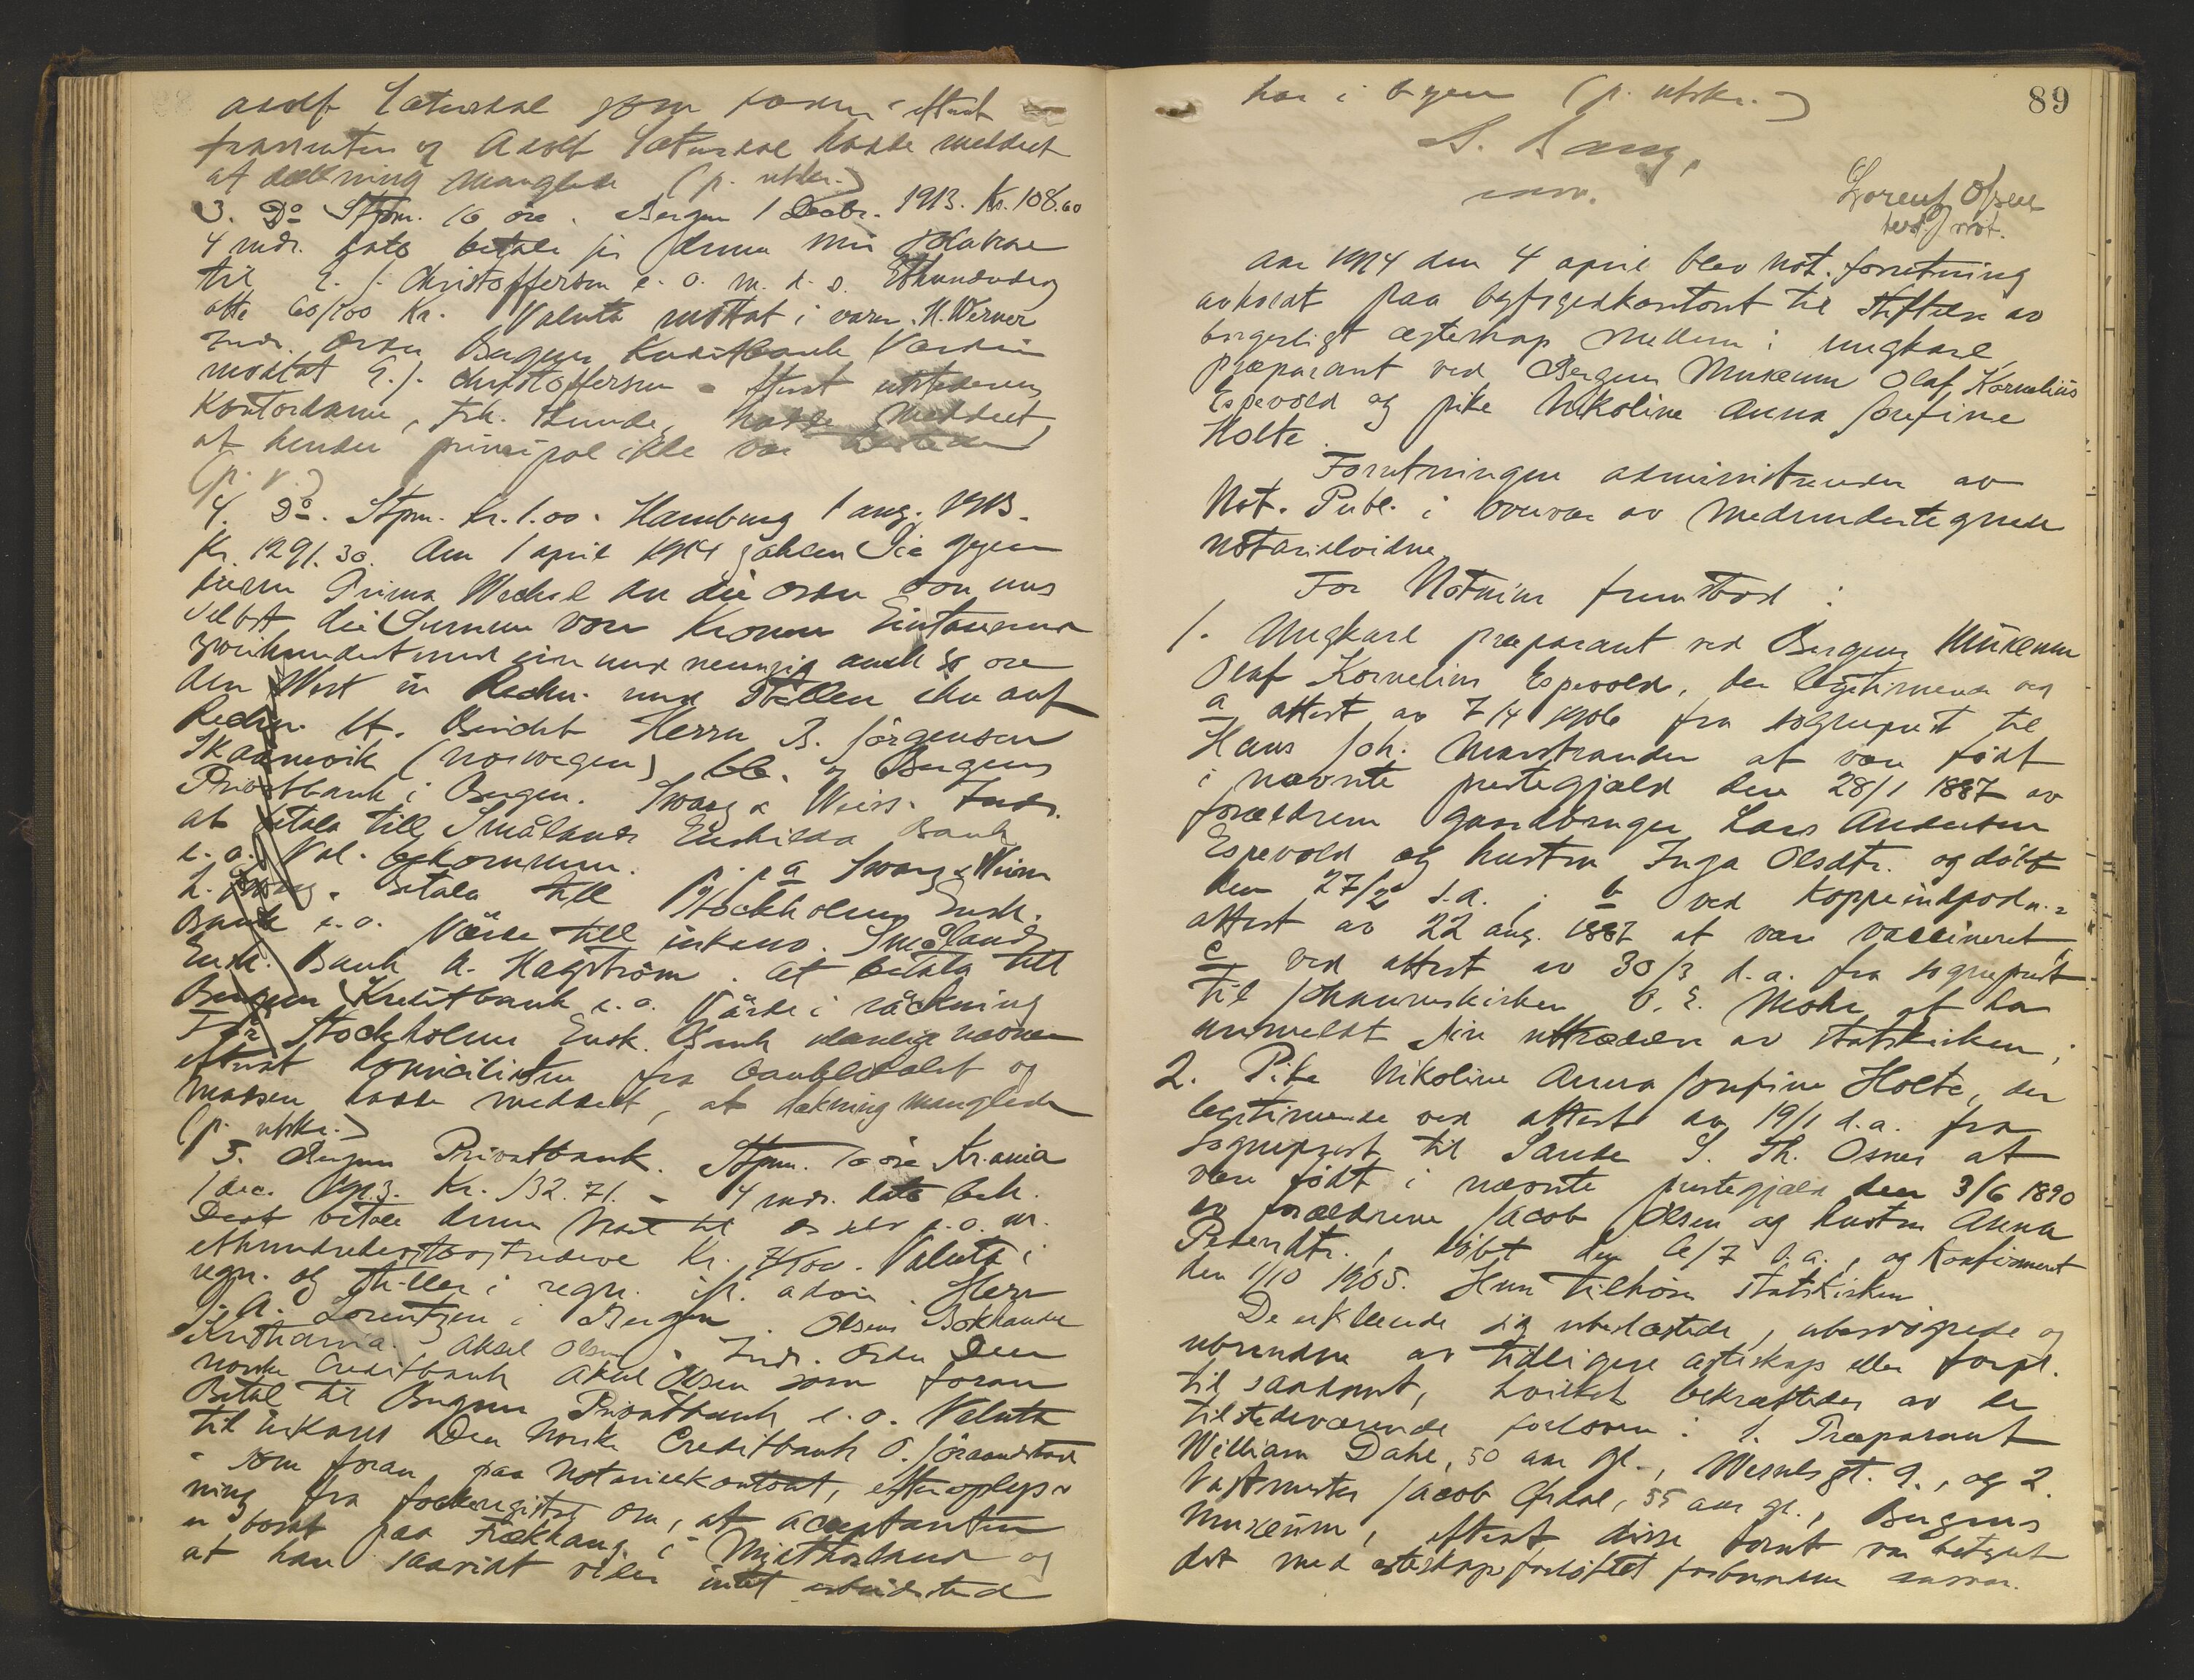 Adolf Sætersdal som foran - efterat
trassenten og Adolf Sætersdal hadde meddelt
at dækning manglede (p. utskr.)
3. Do Stpm. 10 øre. Bergen 1 Decbr. 1913. Kr. 108.60
4 mdr. dato betale jeg denne min
til E. J. Christoffersen e. o. m. d. s. Ethundredeog
otte 60/100 Kr. Valuta mottat i varer. H. Werner
Inds. Ordre Bergens Kreditbank Værdien
modtat E. J. Christoffersen - efterat utstederens
Kontordame, Frk. Lunde, hadde meddelt
at hendes principal ikke var tilstede
(p. v.)
4. Do. Stpm. Kr. 1.00. Hamburg 1 aug. 1913.
Kr. 1291.30. Am 1 april 1914 zahlen Sie gegen
diesen Prima Wechsel an die Ordre von uns
selbst die Summe von Kronen Eintausend
zweihundert und ein und neunzig auch 30 øre
den Wert in Rechn. und stellen ihn auf
Rechn. lt. Bericht Herrn B. Jörgensen
Skaanevik (Norwegen) bb. og Bergens
Privatbank i Bergen. Swarz & Weiss. Inds.
at betala till Smålands Enskilda Bank
e. o. Val. bekommen. p. p. a Swarz & Weiss
betala till Stockholms Ensk.
Bank e. o. Värde till inkasso. Smålands
Ensk. Bank A. Hagström. At betala till
Bergens Kreditbank e. o. Värde i räkning
För Stockholms Ensk. Bank ulæselige navne
efterat domicilisten fra banklokalet og
massen hadde meddelt, at dækning manglede
(p. utskr.)
5. Bergens Privatbank. Stpm. 10 øre Kr.ania
1 dec. 1913. Kr. 132.71. - 4 mdr. dato beh.
Dest betale denne til os selv e. o. m.
ethundredeogtoogtredive Kr. 71/00. Valuta i
regn. og stilles i regn. ift. advis. Herr
J. A. Lorentzen i Bergen. Olsens Bokhandel
Kristiania. Aksel Olsen - Inds. Ordre Den
norske Creditbank Aksel Olsen som foran
Betal til Bergens Privatbank e. o. Valuta
til inkasso Den Norske Creditbank O.
- som foran, paa Notarialkontoret, efter oplys-
ning fra folkeregistret om, at acceptanten
er bosat paa Fækhaug i Midthordland og
at han saavidt vides intet arbeidssted
89
har i byen (p. utskr.)
S. Bang,
Lorent Olsen
test. not.
Aar 1914 den 4 april blev Not. forretning
avholdt paa byfogedkontoret til stiftelse av
borgerligt egteskap mellem: ungkarl
præparant ved Bergens Museum Olaf Kornelius
Espevold og pike Nikoline Anna Josefine
Holte.
Forretningen administreredes av
Not. Publ. i overvær av medundertegnede
notarialvidne.
For Notarius fremstod:
1. Ungkarl præparant ved Bergens Museum
Olaf Kornelius Espevold, der legitimerede ved
a attest av 7/4 1906 fra sogneprest til
Hans Joh. Marstrander at være født
i nævnte prestegjæld den 28/1 1887 av
forældrene gaardbruger Lars Andersen
Espevold og hustru Inga Olsdtr. og døbt
den 27/2 s.a.; b ved koppeindpodn.-
attest av 22 aug. 1887 at være vaccineret,
c ved attest av 30/3 d.a. fra sogneprest
til Johanneskirken O. E. Mohn at ha
anmeldt sin uttrædelse av statskirken;
2. Pike Nikoline Anna Josefine Holte, der
legitimerede ved attest av 19/1 d.a. fra
sogneprest til Sande S. Th. Osnes at
være født i nævnte prestegjæld den 3/6 1890
av forældrene Jacob Olsen og hustru Anna
Pedersdtr., døbt den 6/7 s.a., og konfirmeret
den 1/10 1905. Hun tilhører statskirken
De erklærede sig ubeslægtede, ubesvogrede og
ubundne av tidligere egteskap eller forpl.
til saadant, hvilket bekræftedes av de
tilstedeværende forlovere: 1. Præparant
William Dahl, 50 aar gl., Wesselsgt. 9., og 2.
Vagtmester Jacob Ørdal, 55 aar gl., Bergens
Museum, efterat disse forut var betydet
det med egteskapsforløftet forbundne ansvar.